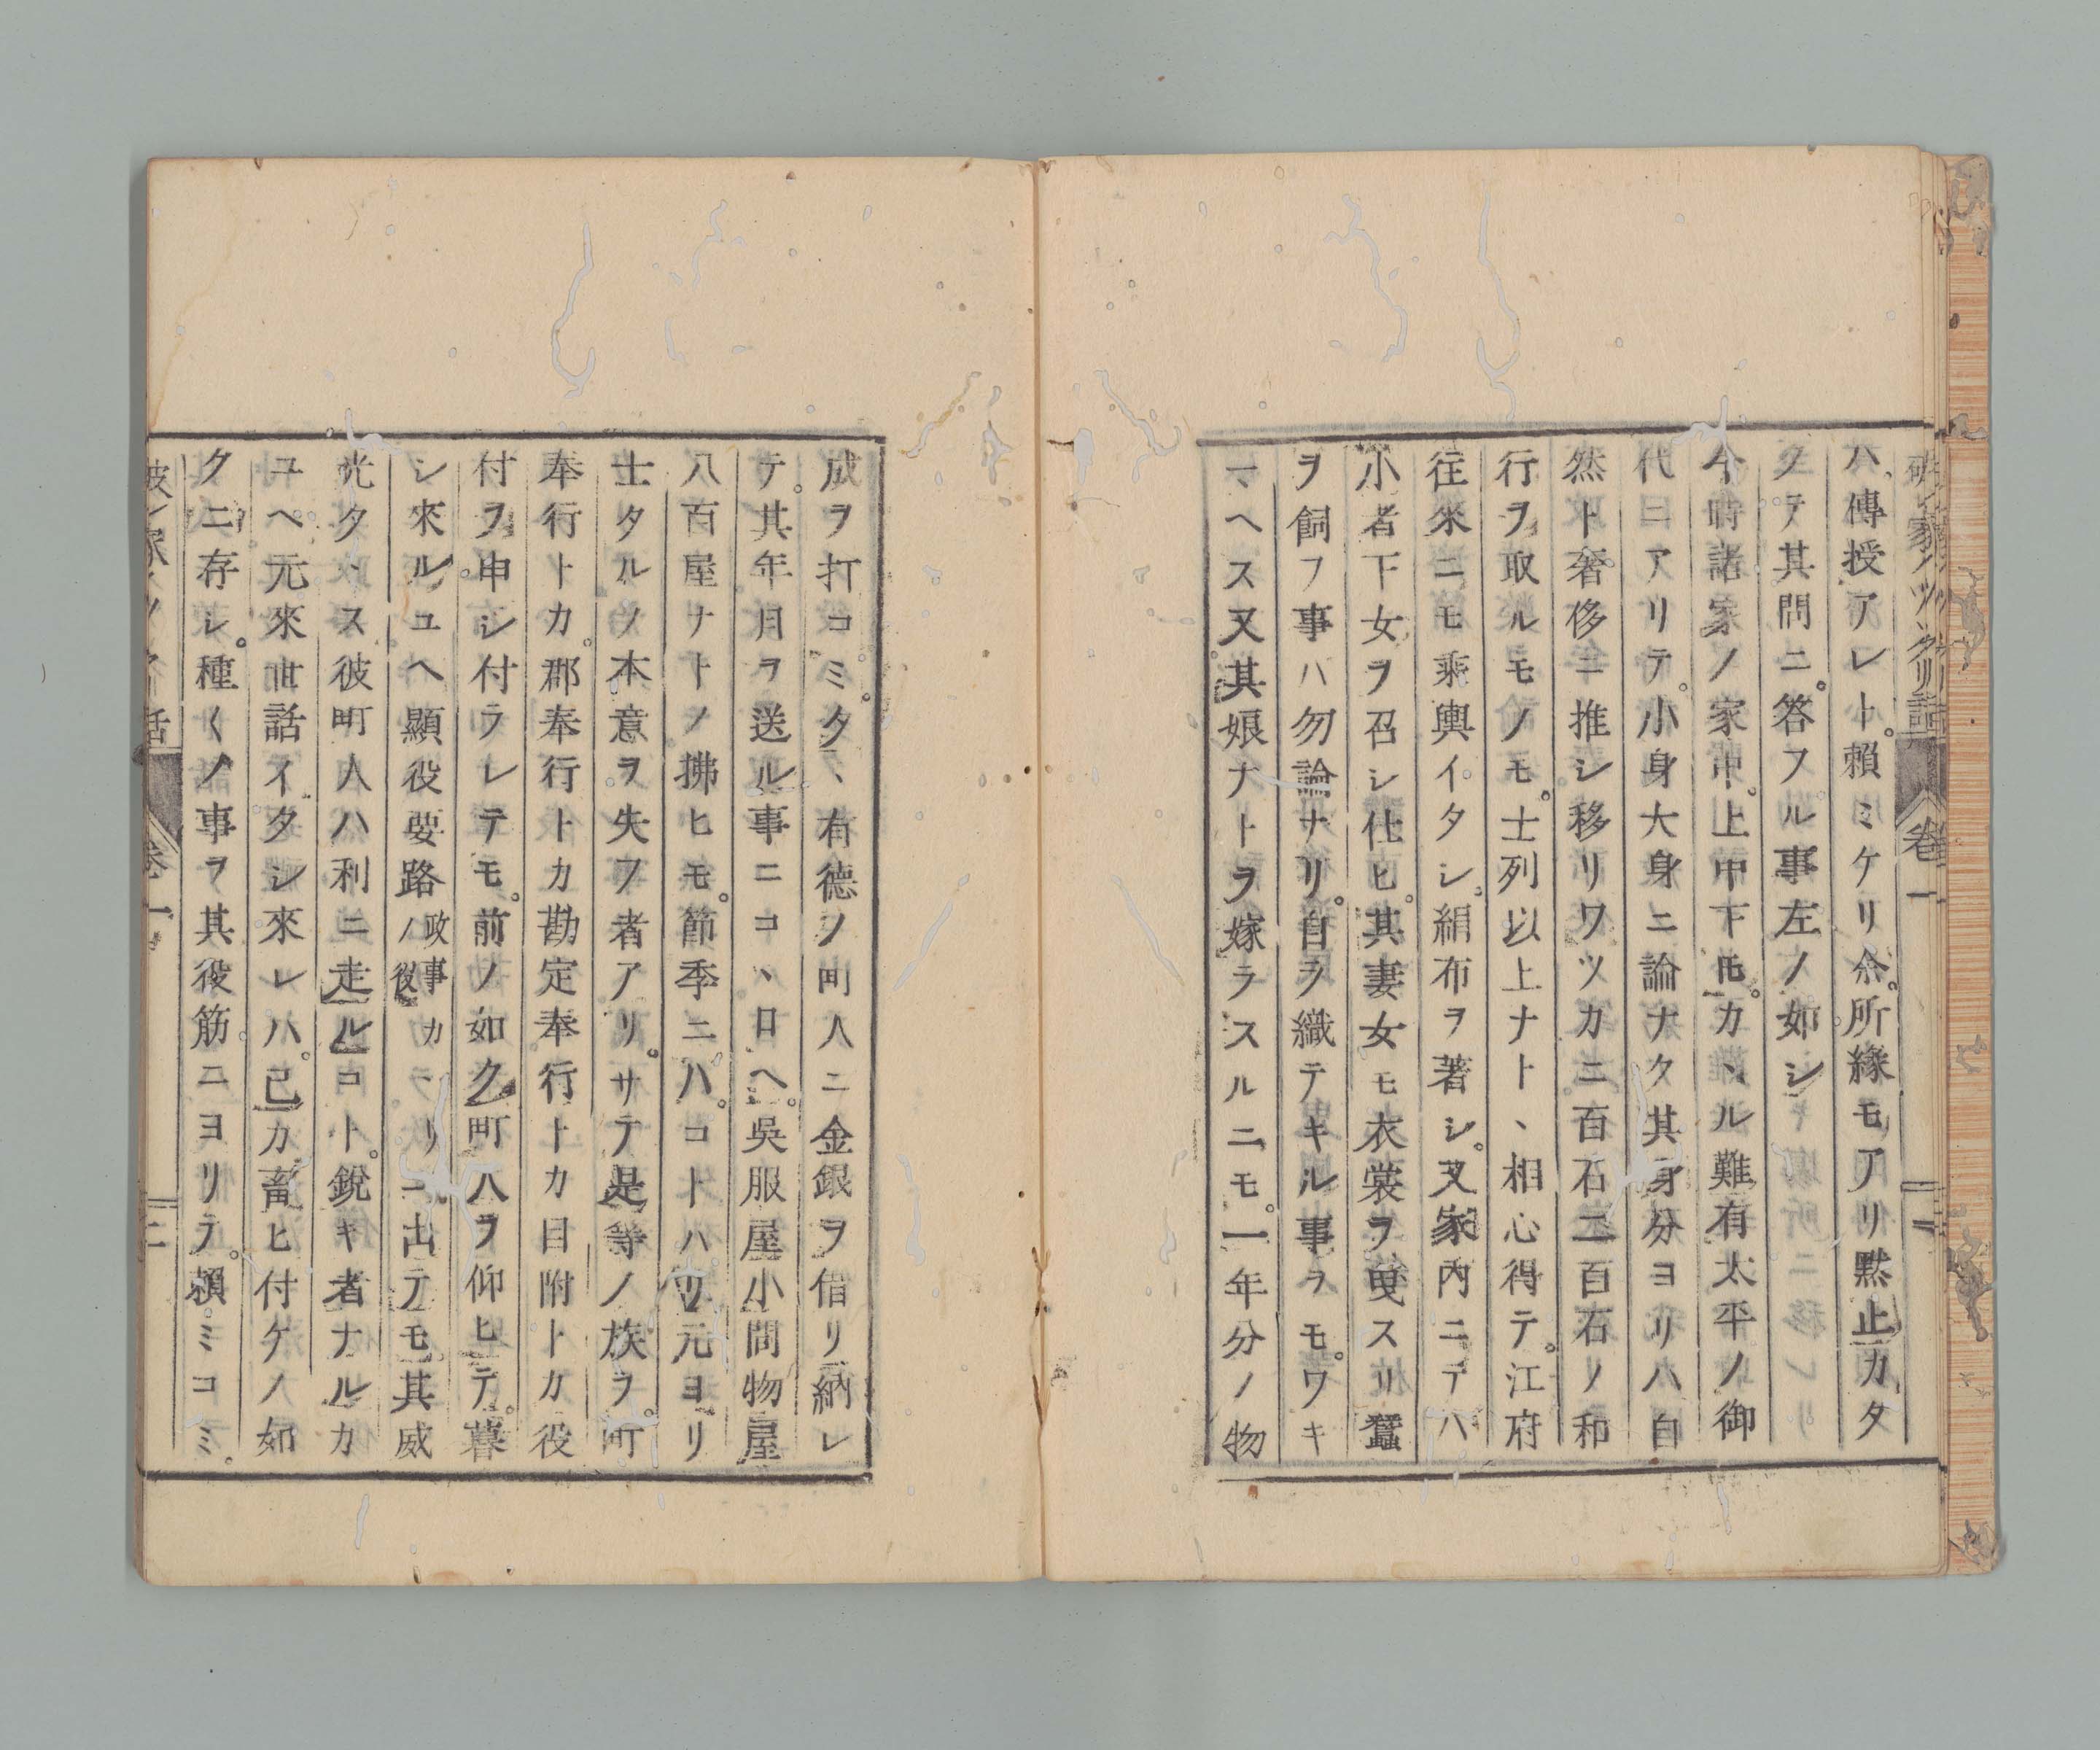 破レ家ノツヽクリ話 巻一 二
ハ。傳授アレト。頼ミケリ余。所縁モアリ黙止カタ
クテ其問ニ。答フル事左ノ如シ
今時諸家ノ家中。上中下モ。カヽル難有太平ノ御
代ニアリテ。小身大身ニ論ナク其身分ヨリハ自
然ト奢侈ニ推シ移リワツカニ百石二百石ノ和
行ヲ取ルモノモ。士列以上ナトヽ相心得テ。江府
往來ニモ乘輿イタシ。絹布ヲ著シ。又家内ニテハ
小者下女ヲ召シ仕ヒ。其妻女モ衣裳ヲ曳スリ蠶
ヲ飼フ事ハ勿論ナリ。自ヲ織テキル事ラモ。ワキ
マヘス又其娘ナトヲ嫁ラスルニモ。一年分ノ物
成ヲ打コミ。タヽ有德ノ町人ニ金銀ヲ借リ納レ
テ。其年月ヲ送ル事ニコヽロヘ。吳服屋小間物屋
八百屋ナトノ拂ヒモ。節季ニハ。コトハリ元ヨリ
士タルノ本意ヲ失フ者アリ。サテ是等ノ族ヲ。町
奉行トカ。郡奉行トカ勘定奉行トカ目附トカ役
付ヲ申シ付ラレテモ。前ノ如ク町人ヲ仰ヒテ。暮
シ來ルユヘ顯役要路ノ政事役カヲリニ出テモ其威
光タヽス彼町人ハ利ニ走ルコト。銳キ者ナルカ
ユヘ元來世話イタシ來レハ。己カ畜ヒ付ケノ如
クニ存シ。種〱ノ事ヲ其役筋ニヨリテ。頼ミコミ。
破レ家ノツヽクリ話 巻一 二